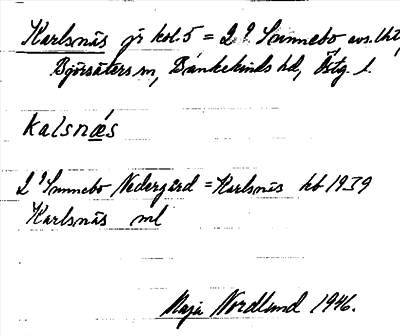 Karlsnäs jr kol. 5 = 2 2 Sunnebo avs. Uht,
Björsäters sn, Bankekinds hd, Östg. l.
kalsnǽs
2 2 Sunnebo Nedergård = Karlsnäs hb 1939
Karlsnäs ml
Maja Nordlund 1946.